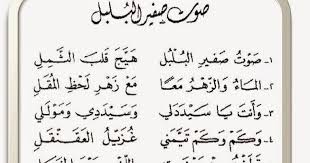 صوت صفير البلبل
١ـ صَوْتُ صَفِيرِ الْبُلْبُلِ هَيَّجَ قَلْبَ الثَّمِلِ
٢ـ الْمَاءُ وَالزَّهْرُ مَعًا مَعَ زَهْرِ لَحْظِ الْمُقَلِ
٣ـ وَأَنْتَ يَا سَيِّدَ لِي وَسَيِّدِي وَمَوْلَى لِي
٤ـ وَكَمْ وَكَمْ تَيَّمَنِي غُزَيِّلٌ عَقَنْقَلِ